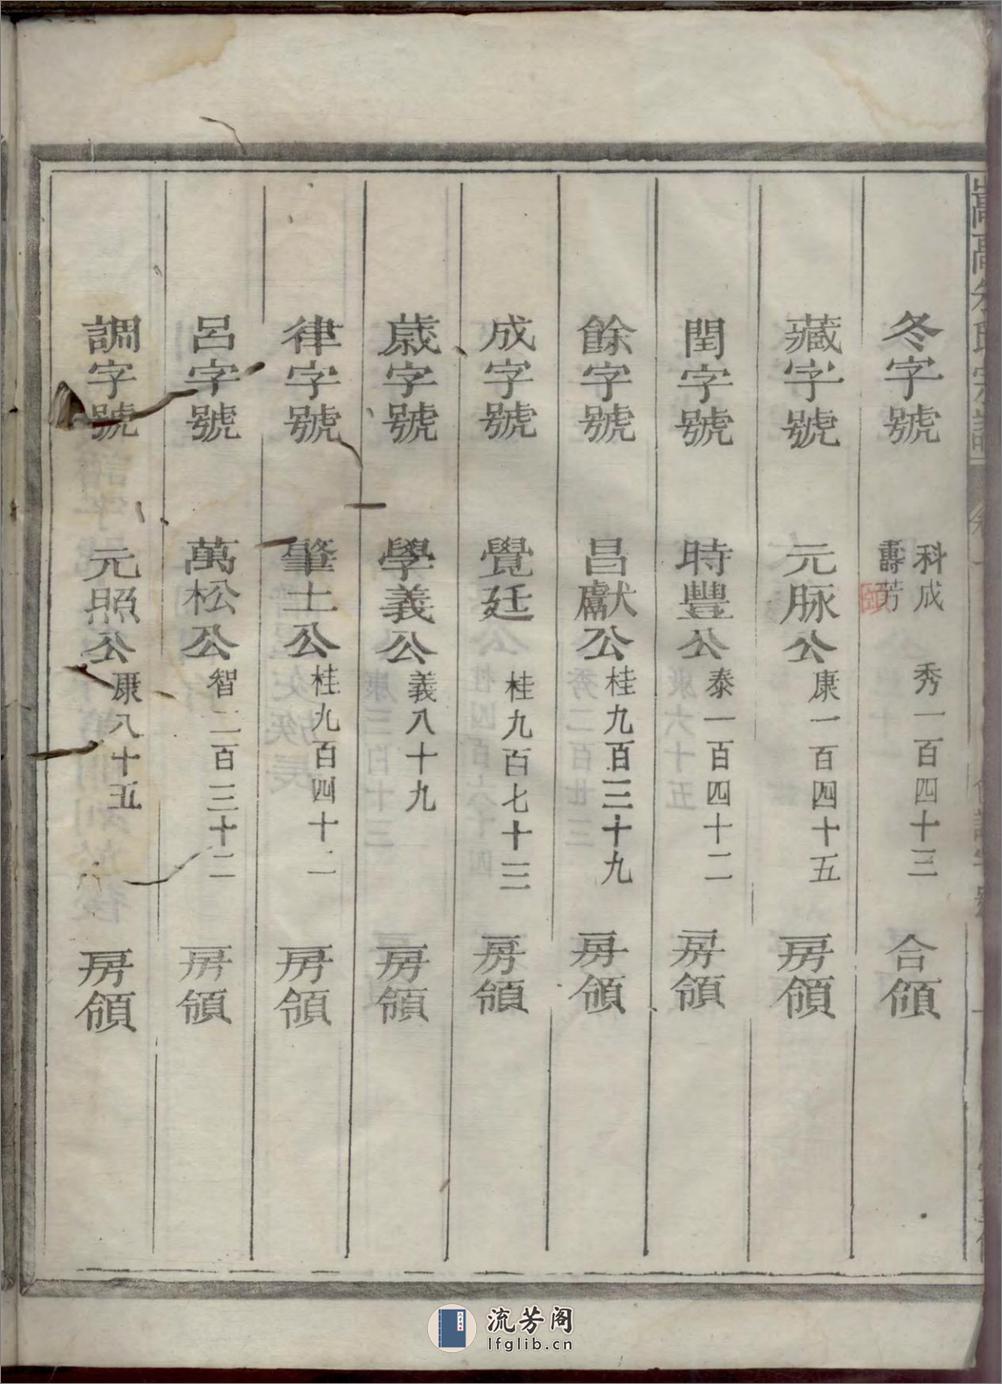 冬字號 科成 壽芳 秀一百四十三 合領
藏字號 元脉公 康一百四十五 房領
閏字號 時豐公 泰一百四十二 房領
餘字號 昌獻公 桂九百三十九 房領
成字號 覺廷 桂九百七十三 房領
歲字號 學義公 義八十九 房領
律字號 肇土公 桂九百四十二 房領
呂字號 萬松公 智二百三十二 房領
調字號 元照公 康八十五 房領
流芳阁
lfglib.cn